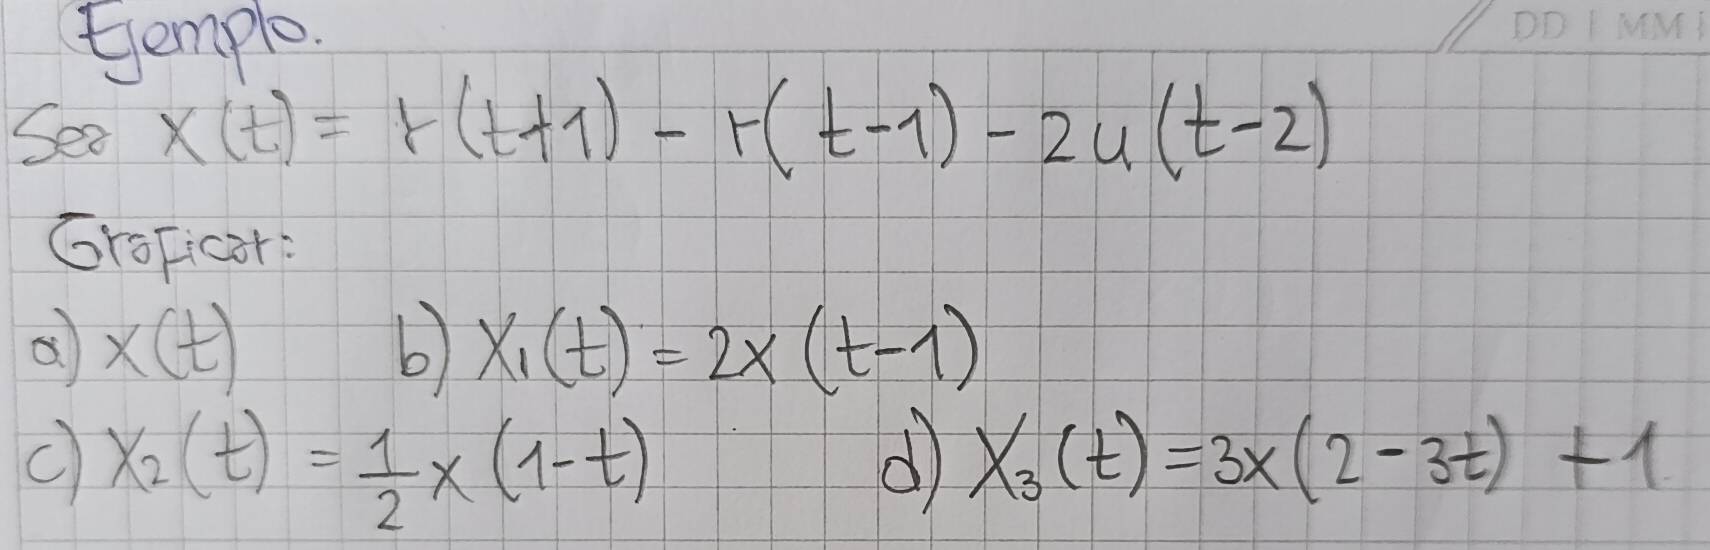 DD | MM |
Ejemplo.
Sea x(t) = r(t+1) - r(t-1) - 2u(t-2)
Graficar:
a) x(t) b) X₁(t) = 2x(t-1)
c) X₂(t) = 1/2 x(1-t) d) X₃(t) = 3x(2-3t) + 1